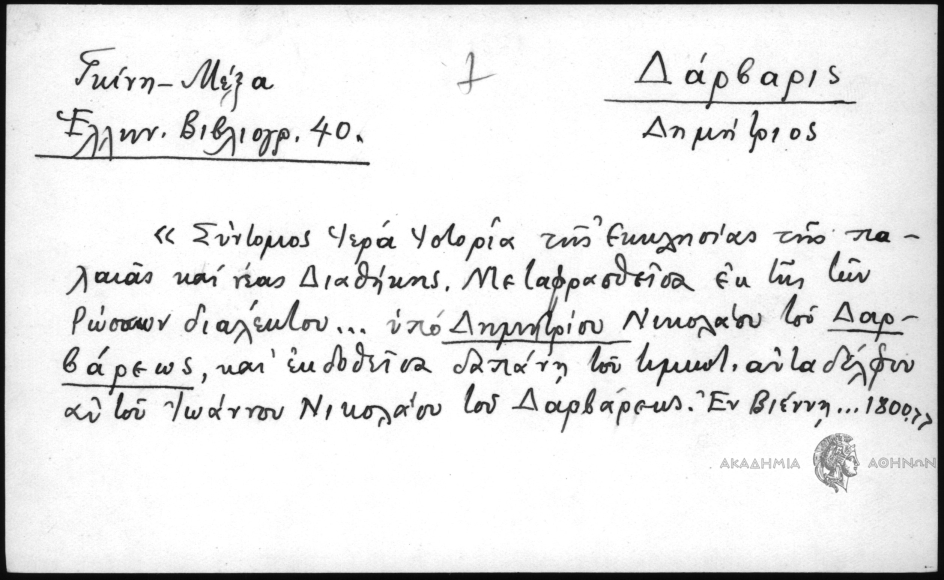 Γκίνη-Μέξα
Ἑλλην. Βιβλιογρ. 40.
1
Δάρβαρις
Δημήτριος
« Σύντομος Ἱερά Ἱστορία τῆς Ἐκκλησίας τῆς πα-
λαιᾶς καί νέας Διαθήκης. Μεταφρασθεῖσα ἐκ τῆς τῶν
Ρώσσων διαλέκτου... ὑπό Δημητρίου Νικολάου τοῦ Δαρ-
βάρεως, καί ἐκδοθεῖσα δαπάνῃ τοῦ τιμιωτ. αὐταδέλφου
αὐτοῦ Ἰωάννου Νικολάου τοῦ Δαρβάρεως. Ἐν Βιέννῃ... 1800.»
ΑΚΑΔΗΜΙΑ ΑΘΗΝΩΝ